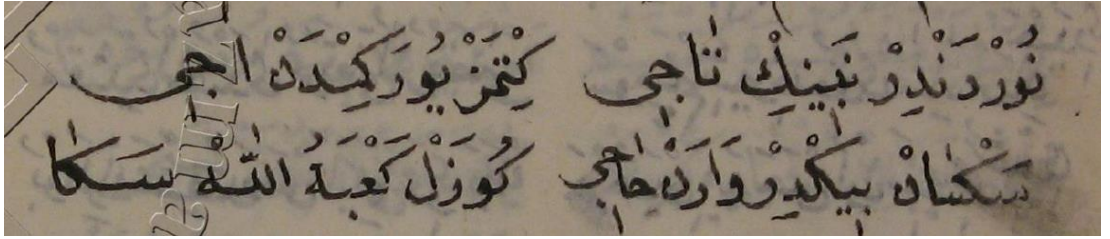 نُورْدَنْدِرْ نَبِينِكْ تَاجِى كِتْمَزْ يُورَكِمْدَنْ اَجِى
سَكْسَانْ بِيكْدِرْ وَارَنْ حَاجِى كُوزَلْ كَعْبَةُ اللّٰهْ سَكَا